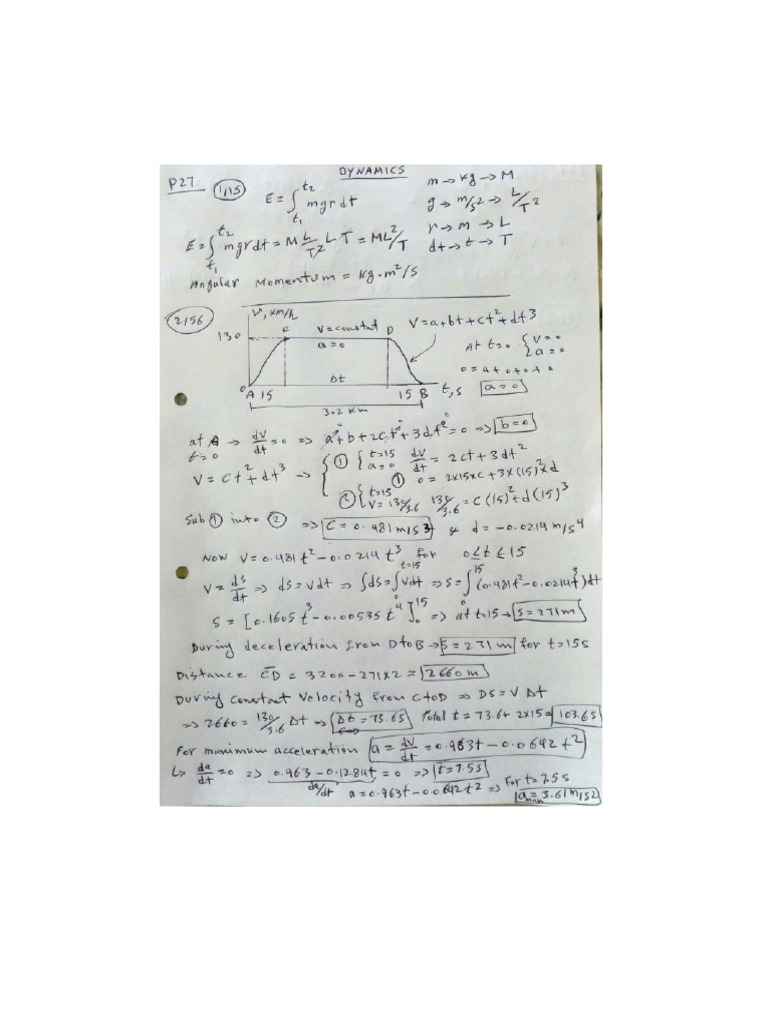 DYNAMICS
P27 1/15
E = ∫t1^t2 mgrdt
m → kg → M
g → m/s² → L/T²
r → m → L
dt → t → T
E = ∫t1^t2 mgrdt = M L/T² L T = ML²/T
Angular Momentum = kg·m²/s
2/56
V, km/h
130
C V = constat D
a = 0
V = a + bt + ct² + dt³
At t=0 { V = 0
a = 0
0 = a + 0 + 0 + 0
a = 0
Δt
0 A 15 15 B t, s
3.2 km
at A → dv/dt = 0 => a + b + 2ct + 3dt² = 0 => b = 0
t = 0
V = ct² + dt³ → { ① { t = 15 a = 0 dv/dt = 2ct + 3dt²
① 0 = 2x15xc + 3x(15)²xd
② { t = 15 V = 130/3.6 130/3.6 = c(15)² + d(15)³
Sub ① into ② => C = 0.481 m/s3 & d = -0.0214 m/s⁴
Now V = 0.481t² - 0.0214t³ for 0 ≤ t ≤ 15
V = ds/dt => ds = vdt => ∫ds = ∫0^t=15 Vdt => S = ∫0^15 (0.481t² - 0.0214t³)dt
S = [0.1605t³ - 0.00535t⁴]0^15 => at t = 15 → S = 271 m
During deceleration from D to B → S = 271 m for t = 15 s
Distance CD = 3200 - 271x2 = 2660 m
During constant velocity from C to D => DS = V Δt
=> 2660 = 130/3.6 Δt => Δt = 73.6s Total t = 73.6 + 2x15 = 103.6s
For maximum acceleration a = dv/dt = 0.963t - 0.0642t²
↳ da/dt = 0 => 0.963 - 0.1284t = 0 => t = 7.5s
da/dt a = 0.963t - 0.0642t² => For t = 7.5s
a max = 3.61 m/s2